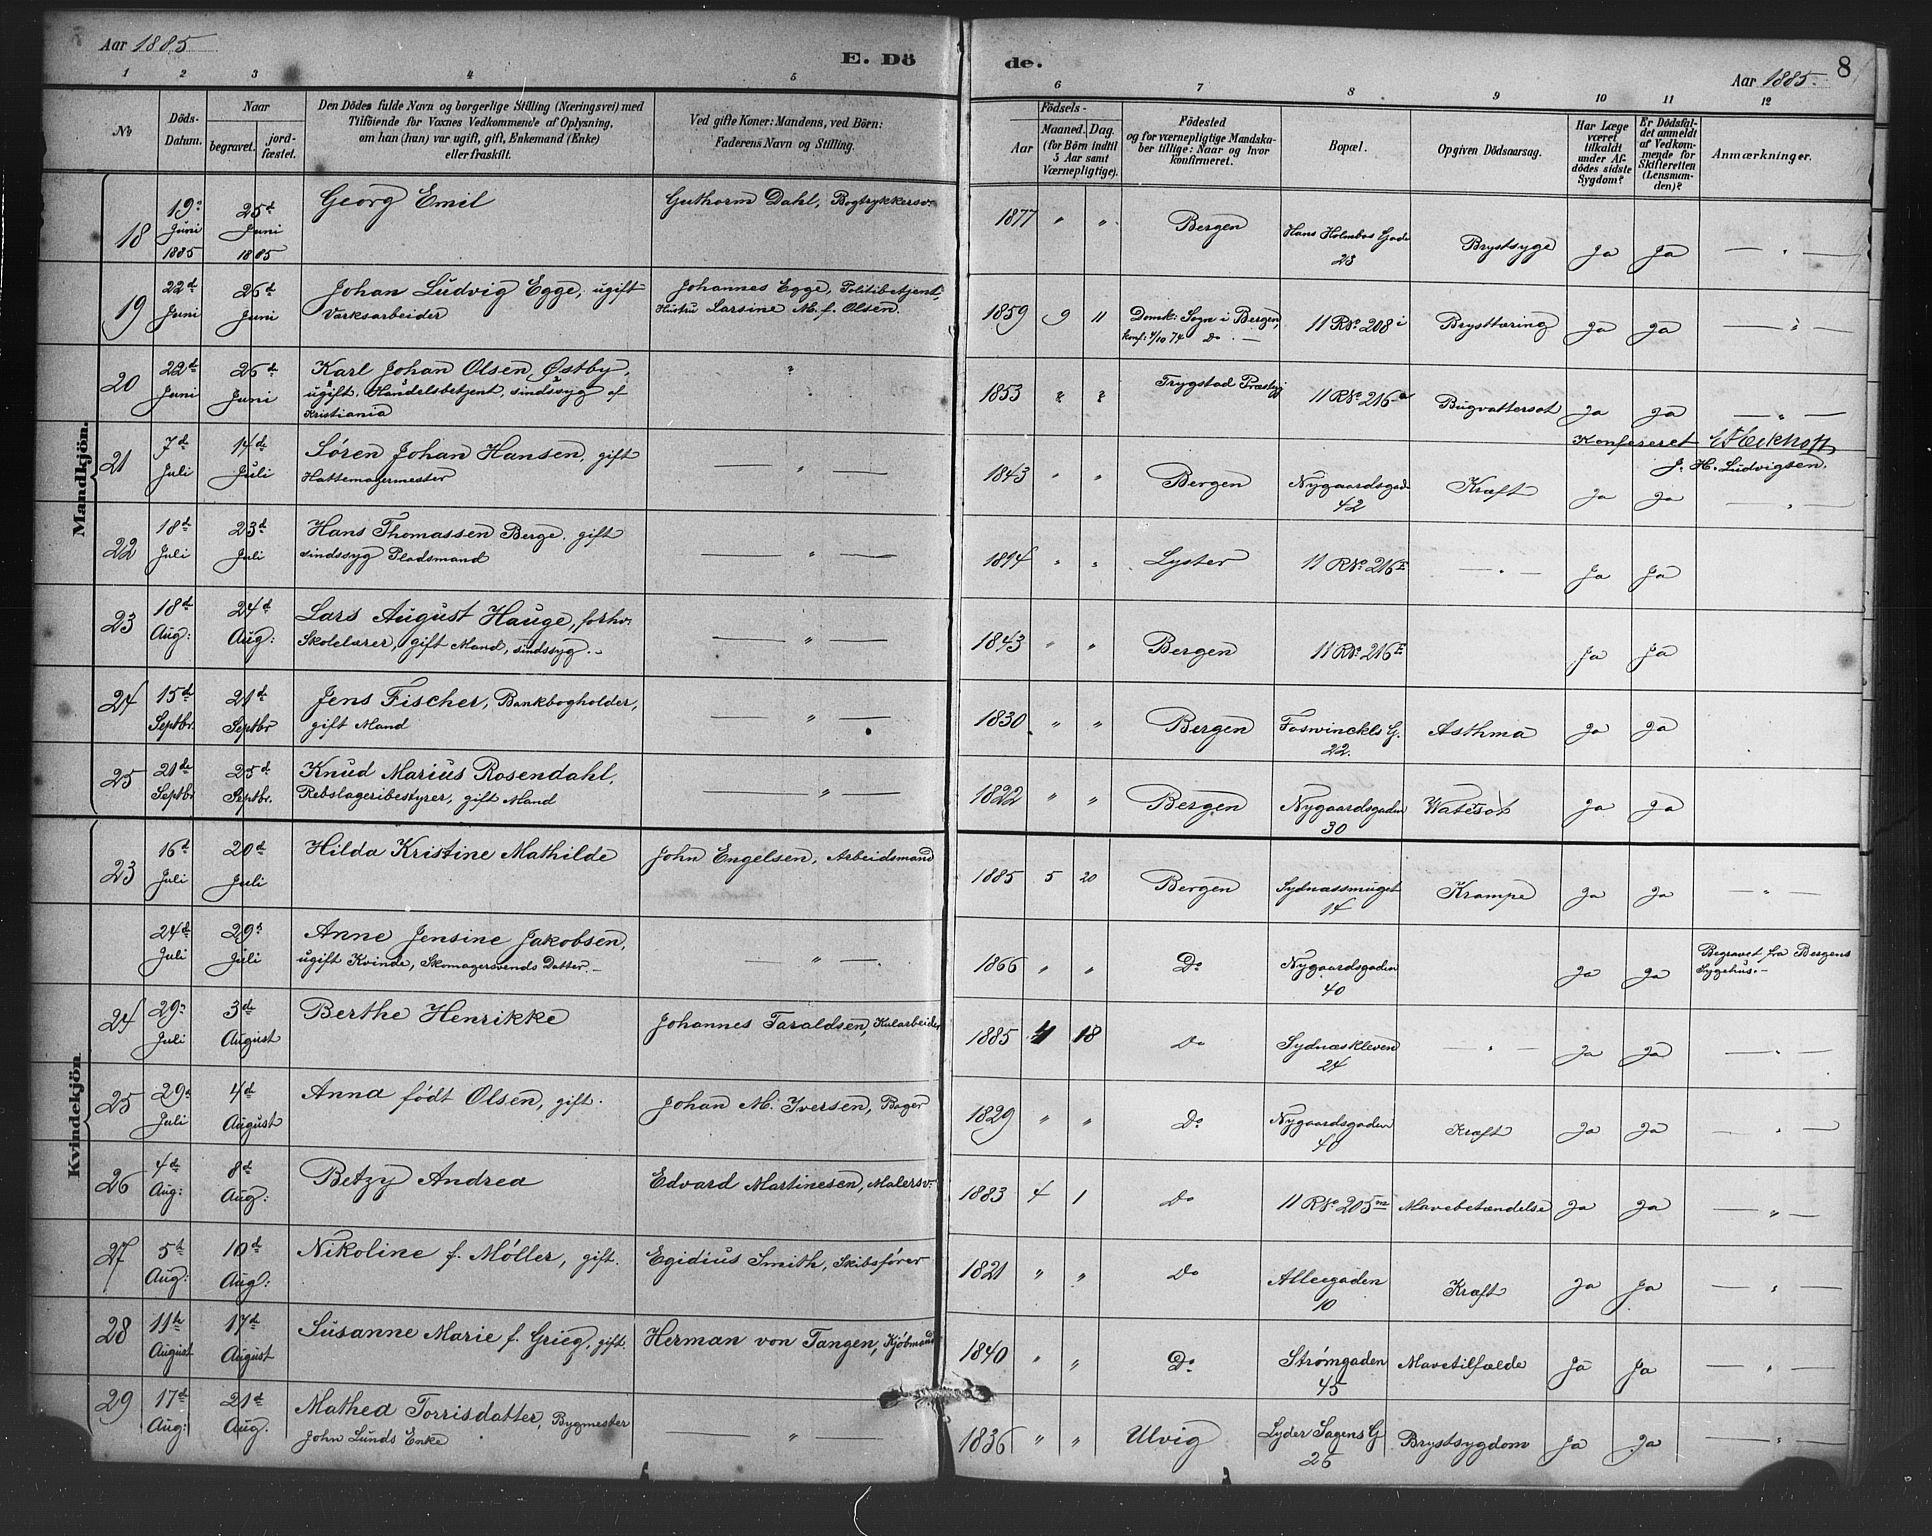 Aar 1885
E. Dö
de.
Aar 1885.
8
1 2 3 4 5 6 7 8 9 10 11 12
No
Döds-Datum.
Naar
begravet.
jord-fæstet.
Den Dödes fulde Navn og borgerlige Stilling (Næringsvei) med
Tilföiende for Voxnes Vedkommende af Oplysning,
om han (hun) var ugift, gift, Enkemand (Enke)
eller fraskilt.
Ved gifte Koner: Mandens, ved Börn:
Faderens Navn og Stilling.
Födsels-
Aar
Maaned. Dag.
(for Börn indtil
5 Aar samt
Værnepligtige).
Födested
og for værnepligtige Mandska-
ber tillige: Naar og hvor
konfirmeret.
Bopæl.
Opgiven Dödsaarsag.
Har Læge
været
tilkaldt
under Af-
dödes sidste
Sygdom?
Er Dödsfal-
det anmeldt
af Vedkom-
mende for
Skifteretten
(Lensman-
den)?
Anmærkninger.
Mandkjön.
18 19de Juni 1885 25d Juni 1885 Georg Emil Guthorm Dahl, Bogtrykkersv. 1877 " " Bergen Hans Holmbos Gade 23 Brystsyge Ja Ja — " —
19 22d Juni 26d Juni Johan Ludvig Egge, ugift
Værksarbeider
Johannes Egge, Politibetjent,
Hustru Larsine M. f. Olsen.
1859 9 11 Domk: Sogn i Bergen,
konf: 4/10 74 Do. —
11 RNo 208 i Brysttæring Ja Ja — " —
20 22d Juni 26d Juni Karl Johan Olsen Østby,
ugift, Handelsbetjent, sindssyg af
Kristiania
" 1853 " " Trygstad Præstgj 11 RNo 216 a Bugvattersot Ja Ja — " —
Konfereret
J. H. Ludvigsen.
21 7d Juli 14de Juli Søren Johan Hansen, gift
Hattemagermester
— " — 1843 " " Bergen Nygaardsgad. 42 Kræft Ja Ja "
22 18d Juli 23d Juli Hans Thomassen Berge, gift
sindssyg Pladsmand
— " — 1814 " " Lyster 11 RNo 216 E — " — Ja Ja
23 18d Aug: 24d Aug: Lars August Hauge, forhv:
Skolelærer, gift Mand, sindssyg. —
— " — 1843 " " Bergen 11 RNo 216 E Ja Ja
24 15d Septbr. 21d Septbr Jens Fischer, Bankbogholder,
gift Mand
— " — 1830 " " Bergen Foswinckls G. 22. Asthma Ja Ja
25 21de Septbr 25d Septbr. Knud Marius Rosendahl,
Rebslageribestyrer, gift Mand
— " — 1822 " " Bergen Nygaardsgaden 30 Watersot Ja Ja
Kvindekjön
23 16d Juli 20d Juli Hilda Kristine Mathilde John Engelsen, Arbeidsmand 1885 5 20 Bergen Sydnæssmuget 14 Krampe Ja Ja — " —
24de Juli 29d Juli Anne Jensine Jakobsen,
ugift Kvinde, Skomagersvends Datter. —
— " —. 1866 " " Do Nygaardsgaden 40 Ja Ja Begravet fra Bergens
Sygehus. —
24 29d Juli 3de August Berthe Henrikke Johannes Taraldsen, Kularbeider 1885 4 18 Do Sydnæskleven 24 — " — Ja Ja — " —
25 29d Juli 4d August Anna født Olsen, gift. Johan M. Iversen, Bager 1829 " " Do Nygaardsgaden 40 Kræft Ja Ja — " —
26 4de Aug: 8d Aug: Betzy Andrea Edvard Martinesen, Malersv. 1883 4 1 Do 11 RNo 205 m Mavebetændelse Ja Ja — " —
27 5t Aug: 10d Aug: Nikoline f. Møller, gift. Egidius Smith, Skibsfører 1821 " " Do Alleegaden 10 Kræft Ja Ja — " —
28 11te August 17d August Susanne Marie f. Grieg, gift. Herman von Tangen, Kjöbmand 1840 " " Do Strømgaden 45 Mavetilfælde Ja Ja — " —
29 17d Aug: 21d Aug. Mathea Torrisdatter, Bygmester
John Lunds Enke
— " — 1836 " " Ulvig Lyder Sagens G 26 Brystsygdom Ja Ja — " —